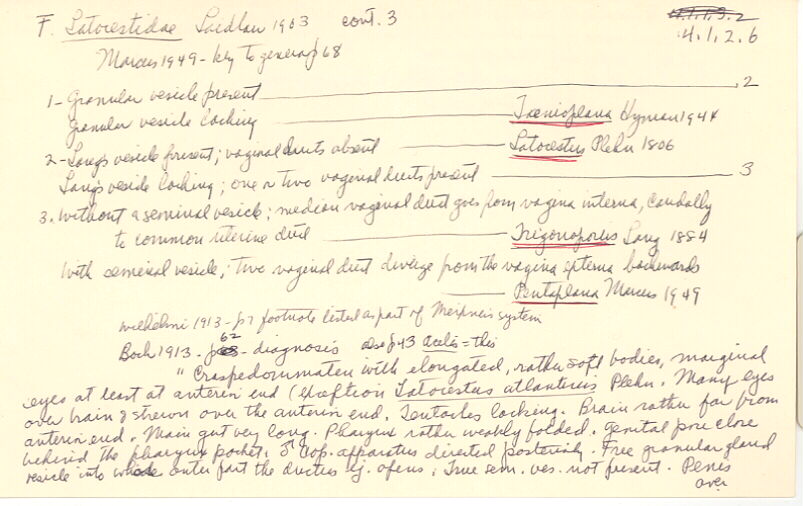 F. Latocestidae Laidlaw 1903 cont. 3
4.1.2.6
Marcus 1949 - key to genera p 68
1 - Granular vesicle present 2
granular vesicle lacking Taenioplana Hyman 1944
2 - Lang's vesicle present; vaginal ducts absent Latocestus Plehn 1806
Lang's vesicle lacking; one or two vaginal ducts present 3
3. Without a seminal vesicle; median vaginal duct goes from vagina interna, caudally
to common uterine duct Trigonoporus Lang 1884
With seminal vesicle; two vaginal duct diverge from the vagina externa backwards
Pentaplana Marcus 1949
Wilhelmi 1913 - p? footnote listed as part of Meixner's system
Bock 1913 - p 62 - diagnosis also p 43 Acelis = this
" Craspedommaten with elongated, rather soft bodies, marginal
eyes at least at anterior end (exception Latocestus atlanticus Plehn. Many eyes
over brain & strewn over the anterior end. Tentacles lacking. Brain rather far from
anterior end. Main gut very long. Pharynx rather weakly folded. Genital pore close
behind the pharynx pocket. ♂ cop. apparatus directed posteriorly. Free granular gland
vesicle into whose outer part the ductus ej. opens. True sem. ves. not present. Penis
over